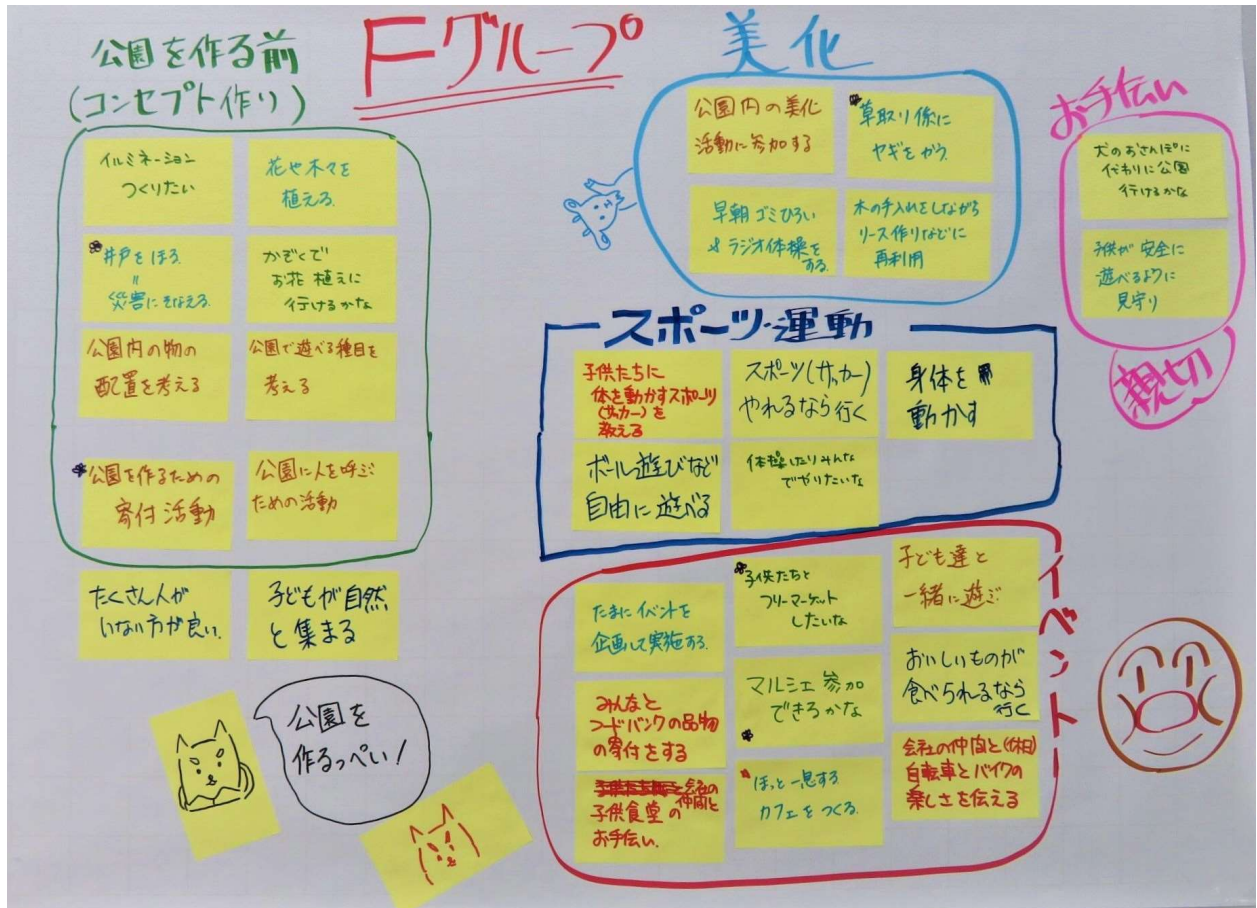 Fグループ
公園を作る前
(コンセプト作り)
イルミネーション
つくりたい
花や木々を
植える.
井戸をほる.
=
災害にそなえる.
かぞくで
お花植えに
行けるかな
公園内の物の
配置を考える
公園で遊べる種目を
考える
公園を作るための
寄付活動
公園に人を呼ぶ
ための活動
たくさん人が
いない方が良い.
子どもが自然
と集まる
公園を
作るっぺい!
美化
公園内の美化
活動に参加する
草取り係に
ヤギをかう.
早朝ゴミひろい
&ラジオ体操を
する.
木の手入れをしながら
リース作りなどに
再利用
お手伝い
犬のおさんぽに
代わりに公園
行けるかな
子供が安全に
遊べるように
見守り
親切
スポーツ・運動
子供たちに
体を動かすスポーツ
(サッカー)を
教える
スポーツ(サッカー)
やれるなら行く
身体を
動かす
ボール遊びなど
自由に遊べる
体操したりみんな
でやりたいな
イベント
たまにイベントを
企画して実施する.
子供たちと
フリーマーケット
したいな
子ども達と
一緒に遊ぶ
みんなと
フードバンクの品物
の寄付をする
マルシェ参加
できるかな
おいしいものが
食べられるなら
行く
会社の
仲間と
子供食堂の
お手伝い.
ほっと一息する
カフェをつくる.
会社の仲間と(休日)
自転車とバイクの
楽しさを伝える